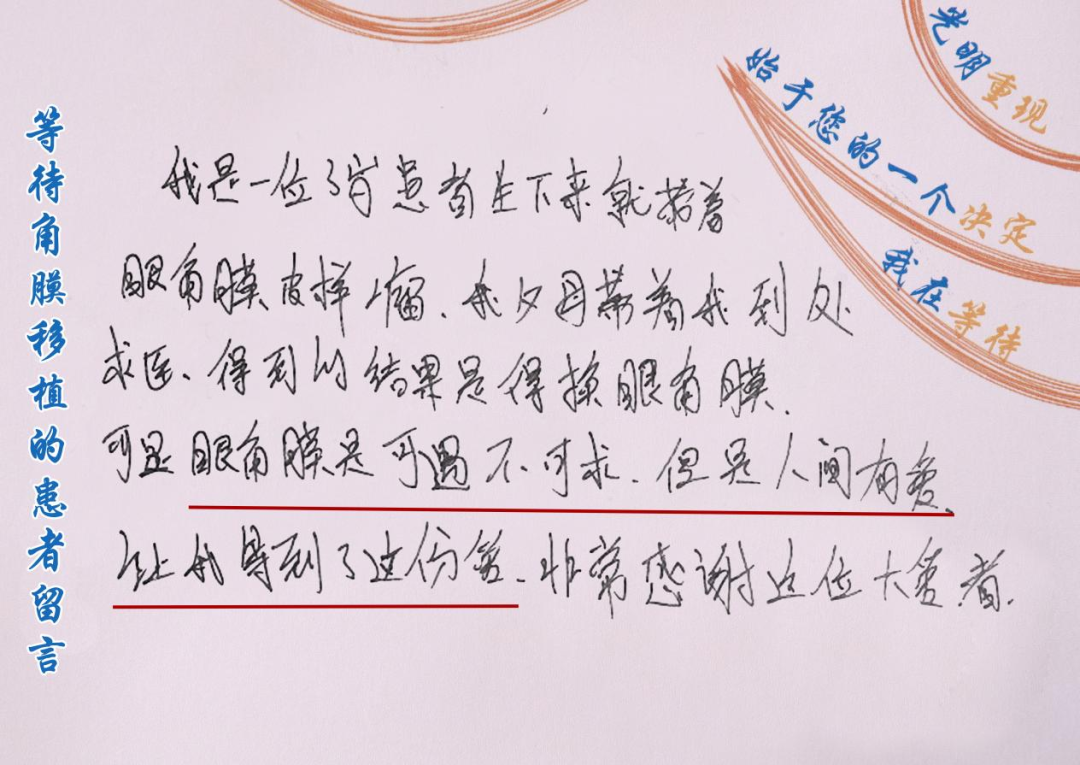 等待角膜移植的患者留言
光明重现
始于您的一个决定
我在等待
我是一位3岁患者生下来就带着
眼角膜皮样瘤、我父母带着我到处
求医、得到的结果是得换眼角膜、
可是眼角膜是可遇不可求、但是人间有爱、
让我得到了这份爱、非常感谢这位大爱者、